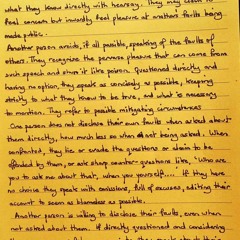 what they know directly with hearsay. They may claim to
feel censure but inwardly feel pleasure at another's faults being
made public.
Another person avoids, if at all possible, speaking of the faults of
others. They recognize the perverse pleasure that can come from
such speech and shun it like poison. Questioned directly and
having no option, they speak as concisely as possible, keeping
strictly to what they know to be true and what is necessary
to mention. They refer to possible mitigating circumstances
One person does not disclose their own faults when asked about
them directly, how much less so when not being asked. When
confronted, they lie or evade the questions or claim to be
offended by them, or ask sharp counter-questions like, 'Who are
you to ask me about that, when you yourself....' If they have
no choice they speak with omissions, full of excuses, editing their
account to seem as blameless as possible.
Another person is willing to disclose their faults, even when
not asked about them. If directly questioned and considering